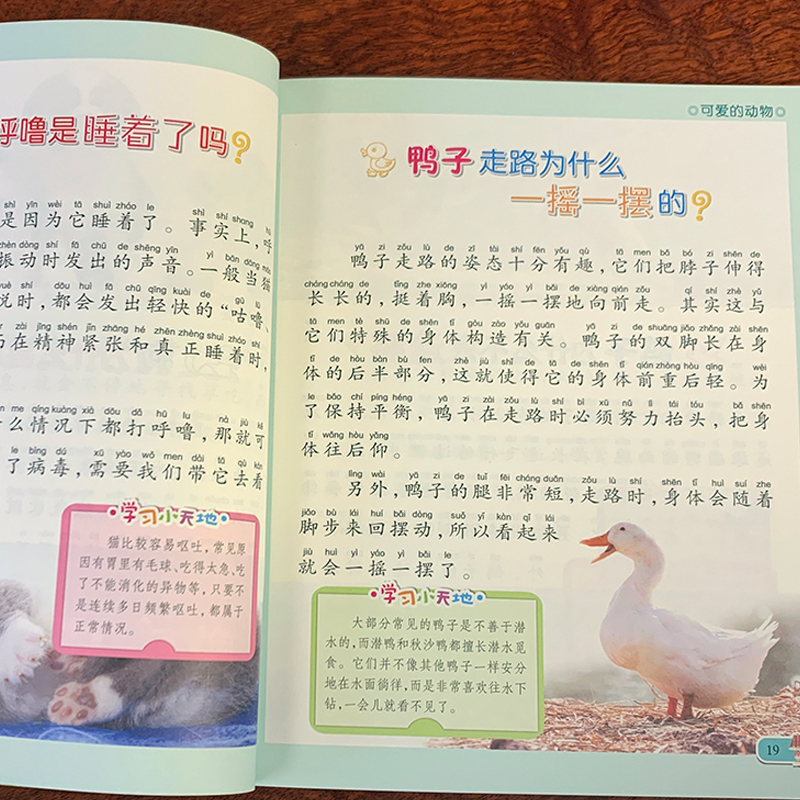 呼噜是睡着了吗?
shì yīn wèi tā shuì zháo le shì shí shang hū
是因为它睡着了。事实上,呼
zhèn dòng shí fā chū de shēng yīn yì bān dāng māo
振动时发出的声音。一般当猫
yuè shí dōu huì fā chū qīng kuài de gū lū
悦时,都会发出轻快的“咕噜
zài jīng shén jǐn zhāng hé zhēn zhèng shuì zháo shí
在精神紧张和真正睡着时,
me qíng kuàng xià dōu dǎ hū lu nà jiù kě
么情况下都打呼噜,那就可
le bìng dú xū yào wǒ men dài tā qù kàn
了病毒,需要我们带它去看
学习小天地
猫比较容易呕吐,常见原
因有胃里有毛球、吃得太急、吃
了不能消化的异物等,只要不
是连续多日频繁呕吐,都属于
正常情况。
可爱的动物
鸭子走路为什么
一摇一摆的?
yā zi zǒu lù de zī tài shí fēn yǒu qù tā men bǎ bó zi shēn de
鸭子走路的姿态十分有趣,它们把脖子伸得
cháng cháng de tǐng zhe xiōng yì yáo yì bǎi de xiàng qián zǒu qí shí zhè yǔ
长长的,挺着胸,一摇一摆地向前走。其实这与
tā men tè shū de shēn tǐ gòu zào yǒu guān yā zi de shuāng jiǎo zhǎng zài shēn
它们特殊的身体构造有关。鸭子的双脚长在身
tǐ de hòu bàn bù fen zhè jiù shǐ de tā de shēn tǐ qián zhòng hòu qīng wèi
体的后半部分,这就使得它的身体前重后轻。为
le bǎo chí píng héng yā zi zài zǒu lù shí bì xū nǔ lì tái tóu bǎ shēn
了保持平衡,鸭子在走路时必须努力抬头,把身
tǐ wǎng hòu yǎng
体往后仰。
lìng wài yā zi de tuǐ fēi cháng duǎn zǒu lù shí shēn tǐ huì suí zhe
另外,鸭子的腿非常短,走路时,身体会随着
jiǎo bù lái huí bǎi dòng suǒ yǐ kàn qǐ lái
脚步来回摆动,所以看起来
jiù huì yì yáo yì bǎi le
就会一摇一摆了。
学习小天地
大部分常见的鸭子是不善于潜
水的,而潜鸭和秋沙鸭都擅长潜水觅
食。它们并不像其他鸭子一样安分
地在水面徜徉,而是非常喜欢往水下
钻,一会儿就看不见了。
19